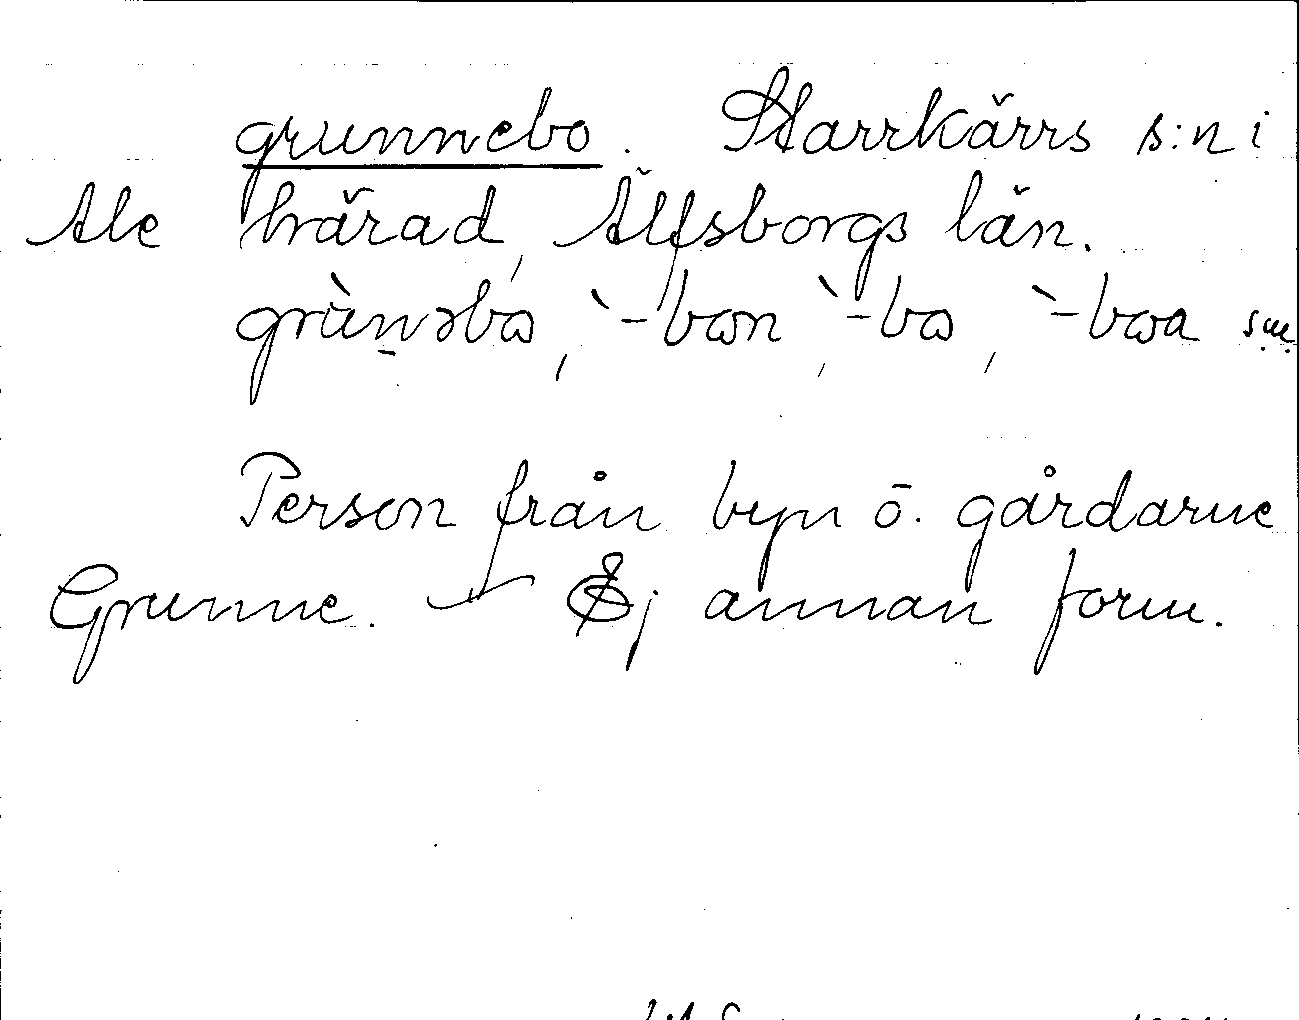 grunnebo. Starrkärrs s:n i
Ale härad, Älfsborgs län.
grùn̠əbω, `-bωn, `-bω, `-bωa sm.
Person från byn o. gårdarne
Grunne. Ej annan form.